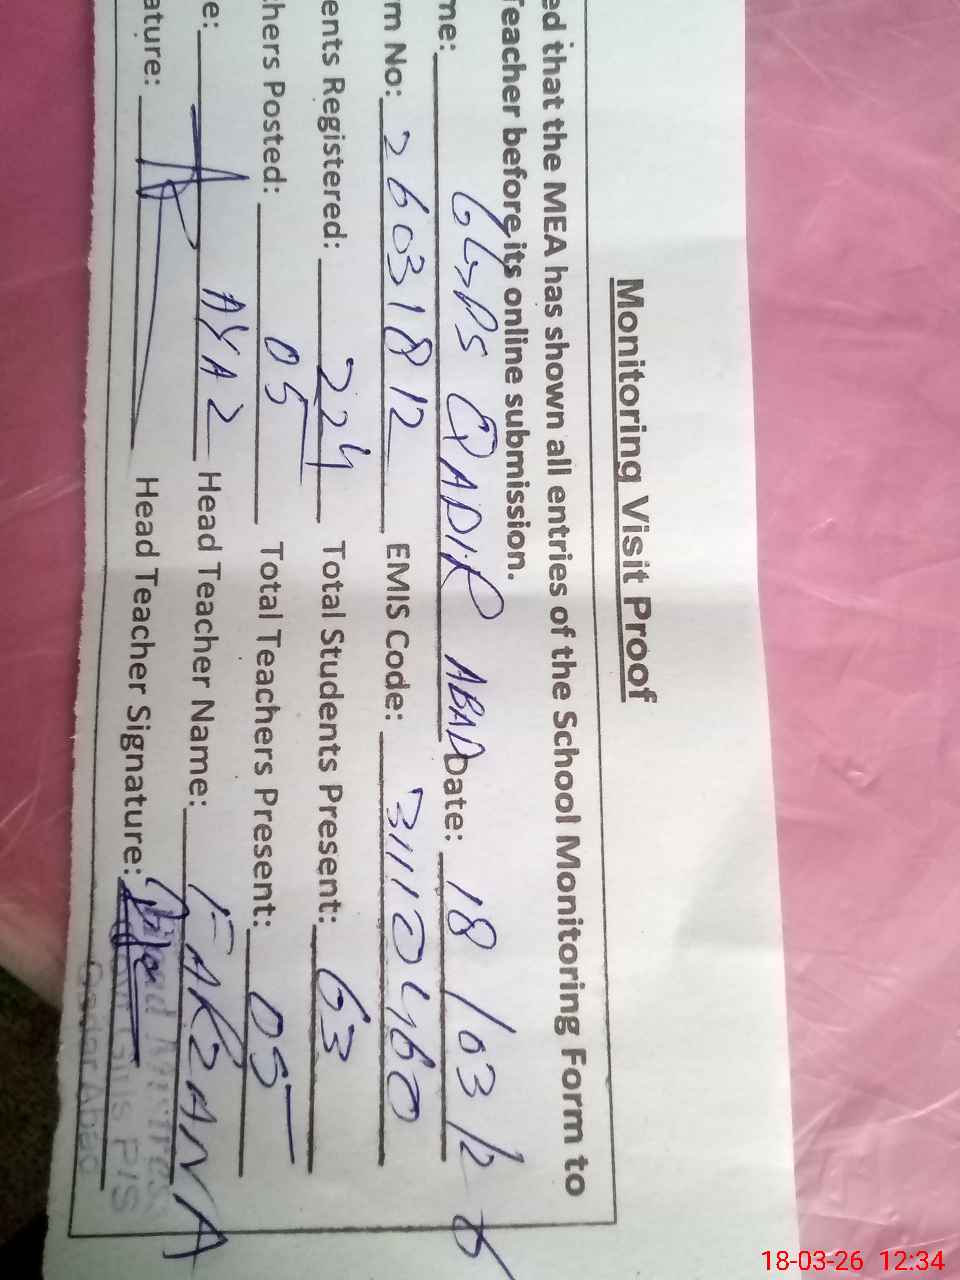 Monitoring Visit Proof
ed that the MEA has shown all entries of the School Monitoring Form to
Teacher before its online submission.
me: GGPS QADIR ABAD Date: 18/03/26
m No: 26031812 EMIS Code: 31110460
ents Registered: 224 Total Students Present: 63
hers Posted: 05 Total Teachers Present: 05
e: AYAZ Head Teacher Name: FARZANA
ature: Head Teacher Signature:
Head Mistress
Girls P/S
Qadar Abad
18-03-26 12:34